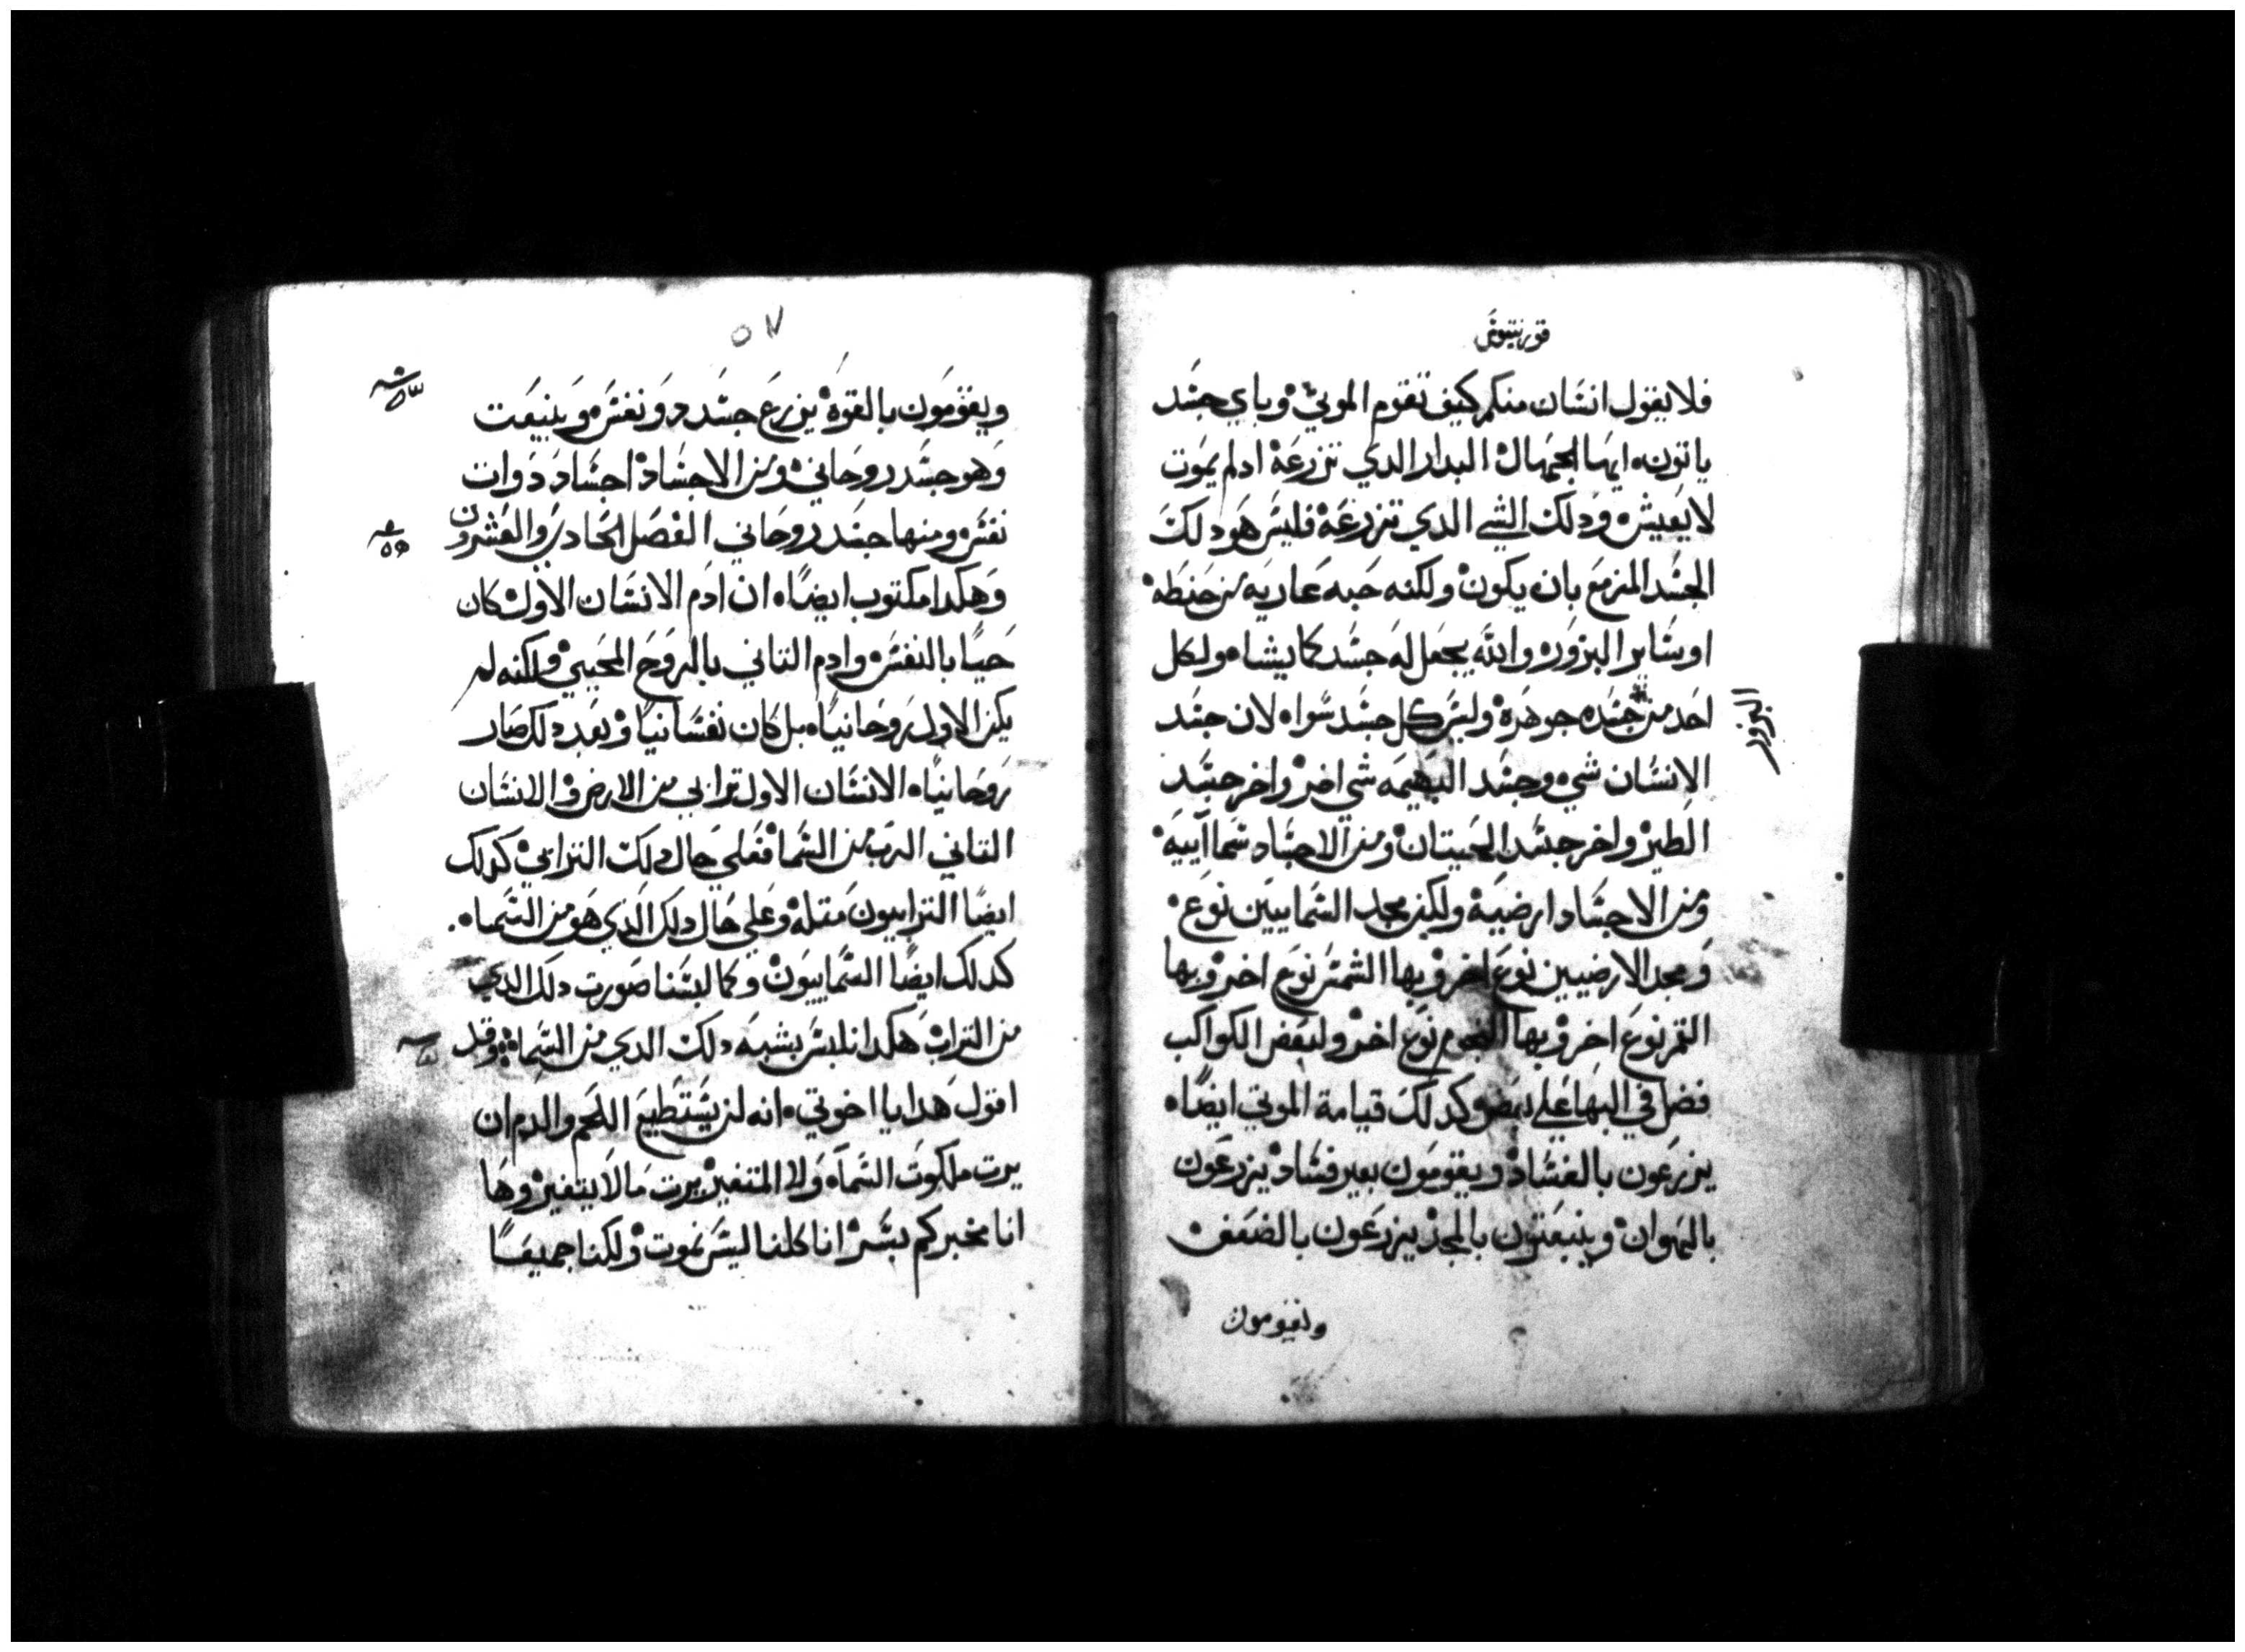 قورنتيوس
فلا يقول انسان منكم كيف تقوم الموتي وباي جسد
ياتون ايها الجهال البدار الدي تزرعه ادلم يموت
لا يعيش ودلك الشي الدي تزرعه فليس هو دلك
الجسد المزمع بان يكون ولكنه حبه عاريه من حنطه
او ساير البزور والله يجعل له جسد كما يشا ولكل
احد من جسده جوهره وليس كل جسد سوا لان جسد
البزور
الانسان شي وجسد البهيمه شي اخر واخر جسد
الطير واخر جسد الحيتان ومن الاجساد سماآييه
ومن الاجساد ارضيه ولكن مجد السماييين نوع
ومجد الارضيين نوع اخر وبها الشمس نوع اخر وبها
القمر نوع اخر وبها النجوم نوع اخر ولبعض الكواكب
فضل في البها علي بعض وكدلك قيامة الموتي ايضًا
يزرعون بالفساد ويقومون بغير فساد يزرعون
بالهوان وينبعتون بالمجد يزرعون بالضعف
ويقومون
٥٧
ويقومون بالقوه يزرع جسد دو نفس وينبعت
وهو جسد روحاني ومن الاجساد اجساد دوات
نفس ومنها جسد روحاني الفصل الحادي والعشرون
وهكدا مكتوب ايضًا ان ادم الانسان الاول كان
حيًا بالنفس وادم التاني بالروح المحيي ولكنه لم
يكن الاول روحانيًا بل كان نفسانيًا وبعد دلك صار
روحانيًا الانسان الاول ترابي من الارض والانسان
التاني الرب من السما فعلي حال دلك الترابي كدلك
ايضًا الترابيون مقله وعلي حال دلك الدي هو من السما
كدلك ايضًا السماييون وكما لبسنا صورت دلك الدي
من التراب هكدا نلبس بشبه دلك الدي من السما وقد
اقول هدا يا اخوتي انه لن يستطيع اللحم والدم ان
يرت ملكوت السمآ ولا المتغير يرت ما لا يتغير وها
انا مخبركم بسر انا كلنا ليس نموت ولكنا جميعًا